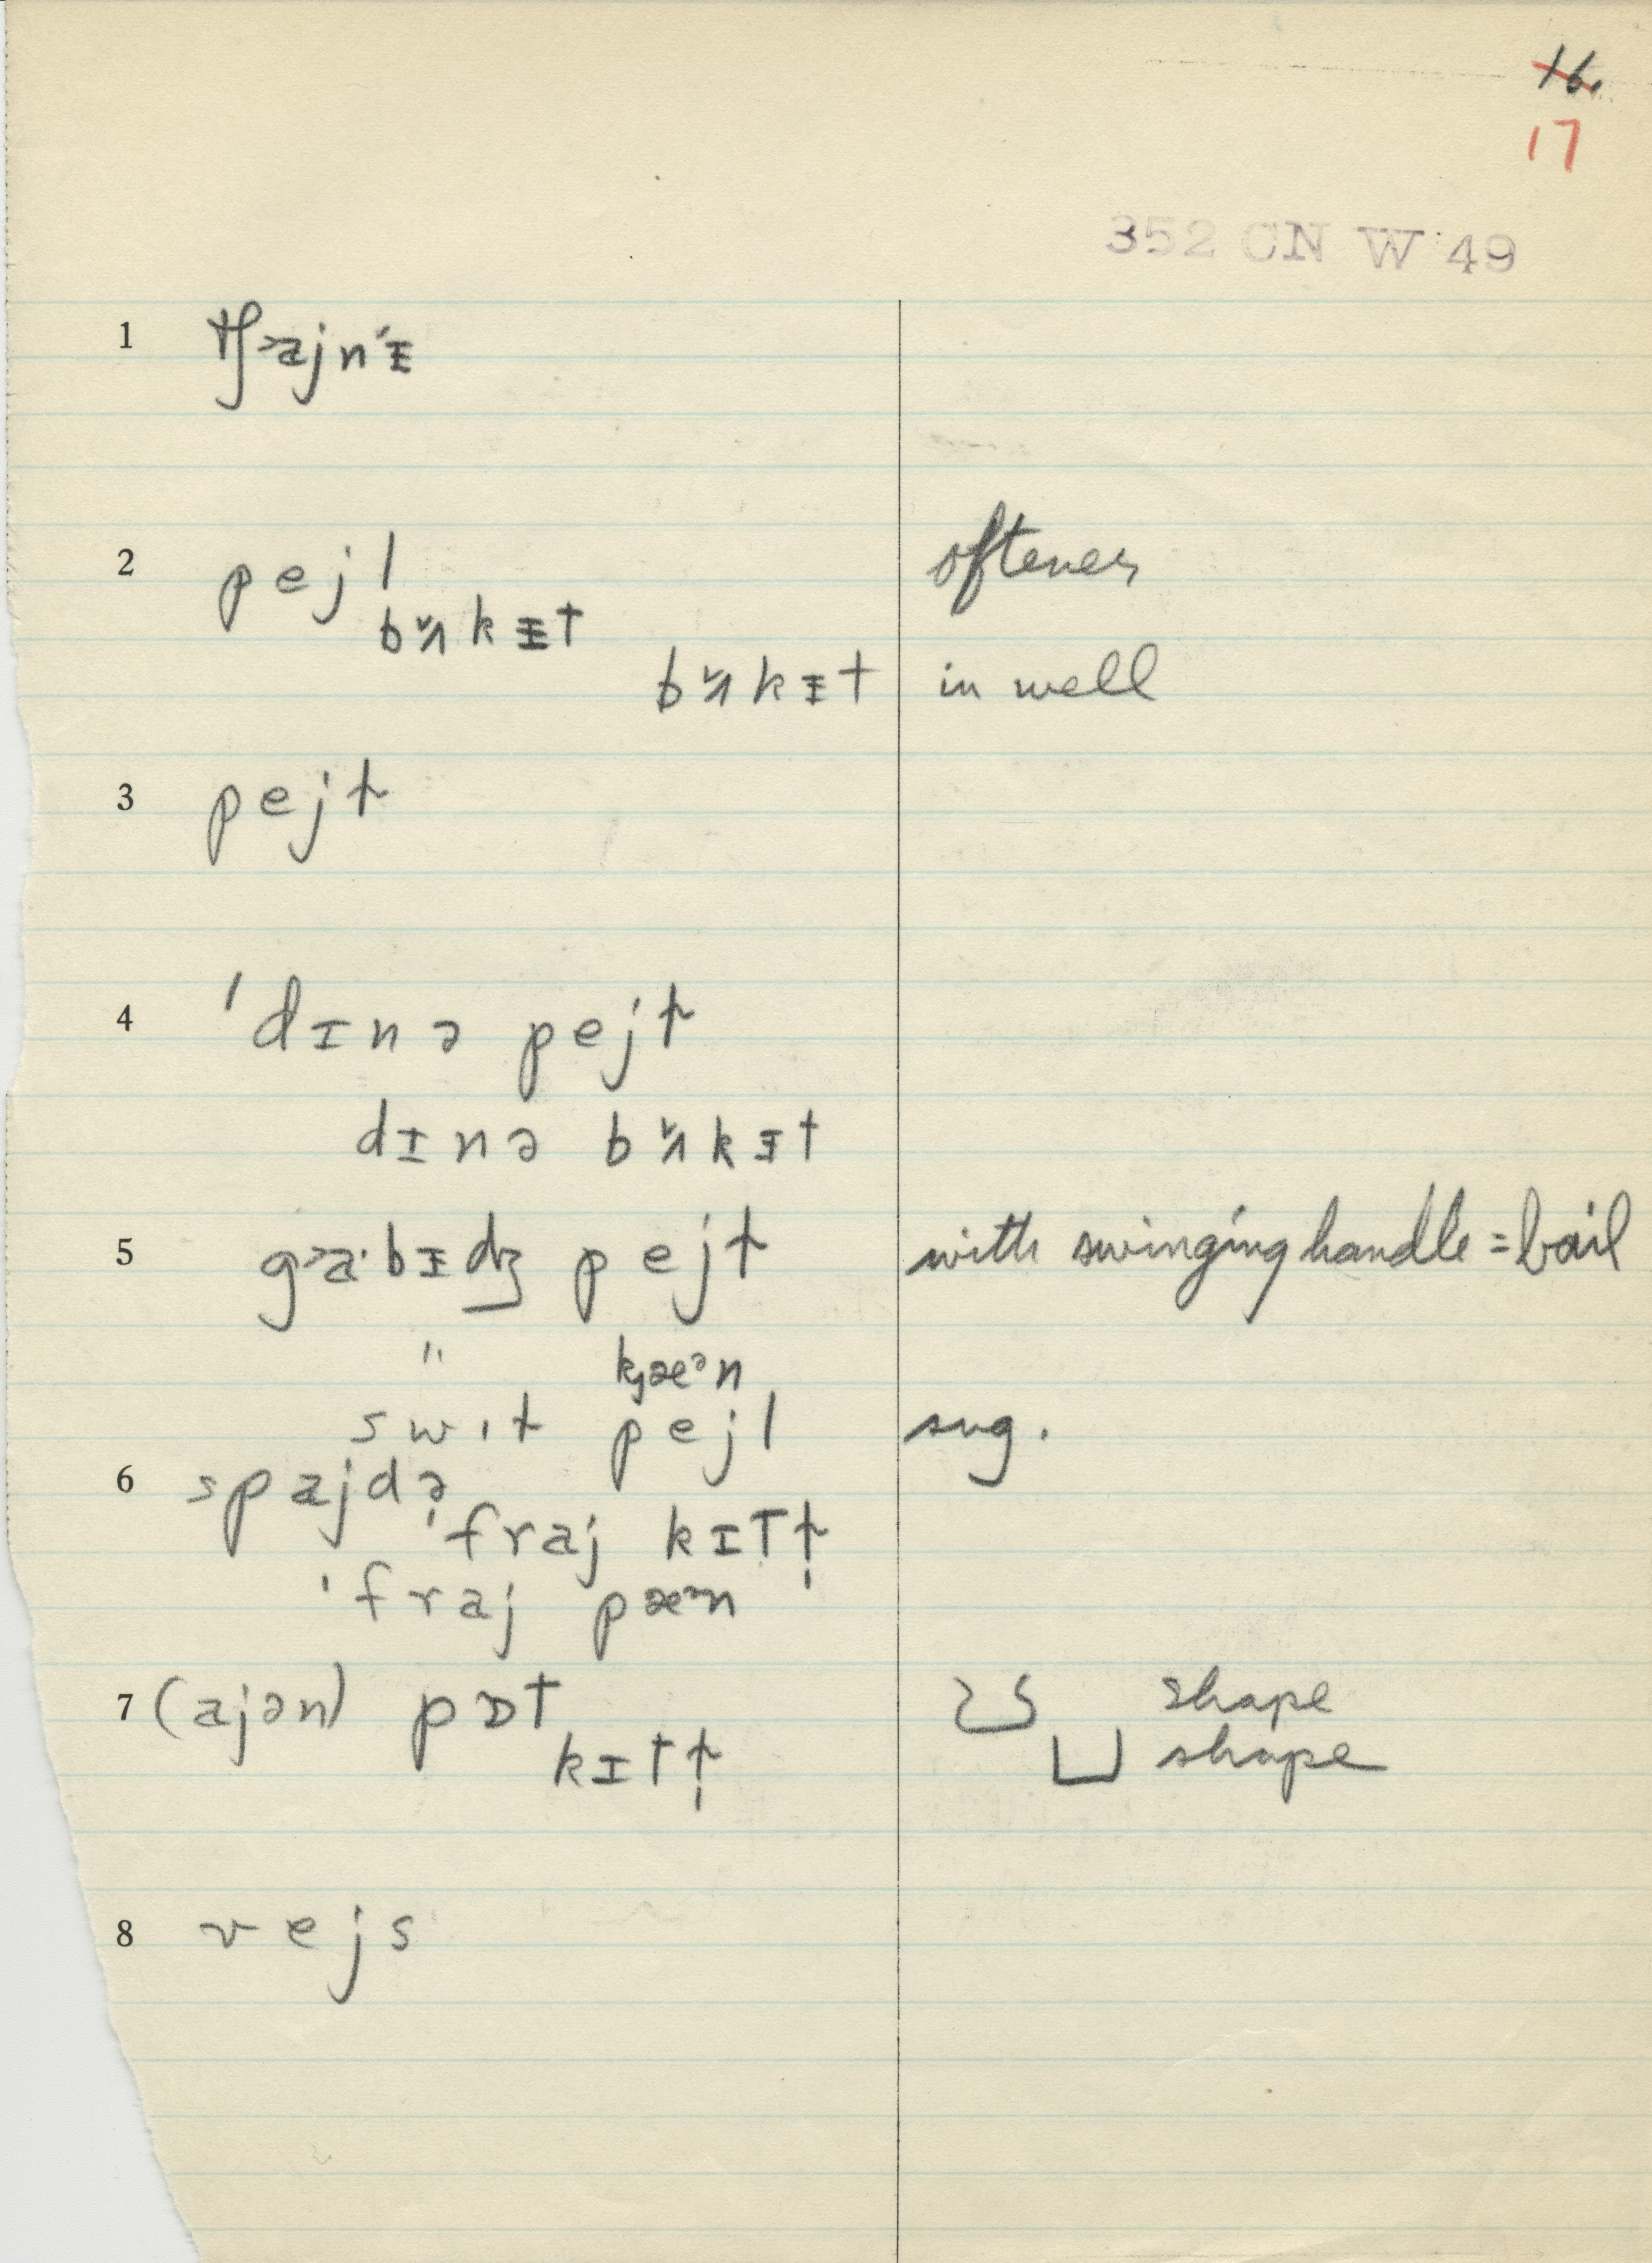 16.
17
352 CN W 49
1 tʃ˃ajn'ᵻ
2 pejl oftener
bʌ̌kᵻt
bʌ̌kᵻt in well
3 pejɫ
4 'dɪnə pejɫ
dɪnə bʌ̌kᵻt
5 g˃a·bɪdʒ pejɫ with swinging handle = bail
" kæᵊn
swɪɫ pejl sug.
6 spajdə
'fraj kɪtɫ̩
'fraj pæᵊn
7 (ajən) pɒt shape
kɪtɫ̩ shape
8 vejs